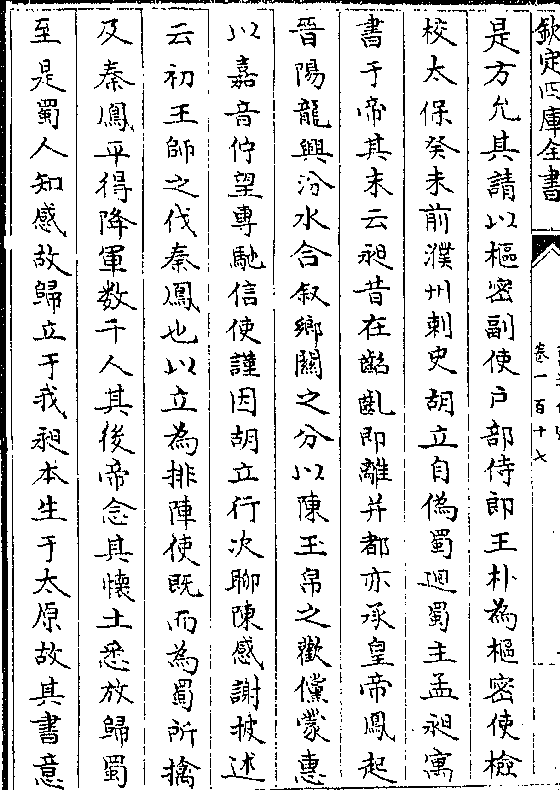 欽定四庫全書
卷一百十七
是方允其請以樞密副使户部侍郎王朴為樞密使檢
校太保癸未前濮州刺史胡立自偽蜀迴蜀主孟昶寓
書于帝其末云昶昔在齠齔即離并都亦承皇帝鳳起
晉陽龍興汾水合叙鄉關之分以陳玉帛之歡儻蒙惠
以嘉音佇望專馳信使謹因胡立行次聊陳感謝披述
云初王師之伐秦鳳也以立為排陣使既而為蜀所擒
及秦鳳平得降軍數千人其後帝念其懷土悉放歸蜀
至是蜀人知感故歸立于我昶本生于太原故其書意